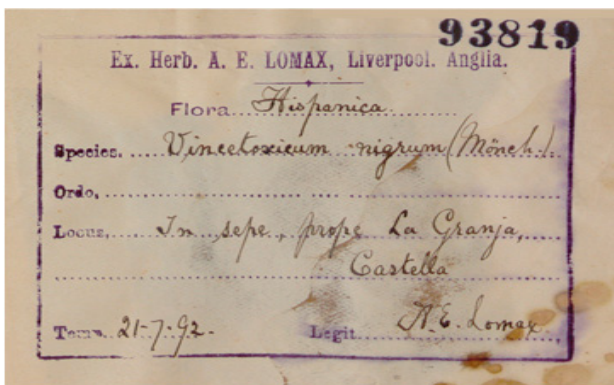 93819
Ex. Herb. A. E. LOMAX, Liverpool. Anglia.
Flora Hispanica
Species. Vincetoxicum nigrum (Mönch.)
Ordo.
Locus. In sepe, prope La Granja,
Castella
Temp. 21-7-92. Legit A. E. Lomax